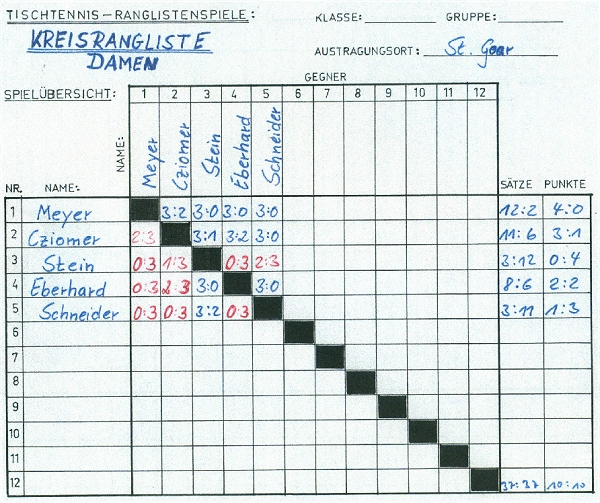 TISCHTENNIS-RANGLISTENSPIELE: KLASSE: GRUPPE:
KREISRANGLISTE
DAMEN
AUSTRAGUNGSORT: St. Goar
GEGNER
SPIELÜBERSICHT: 1 2 3 4 5 6 7 8 9 10 11 12
NAME: Meyer Cziomer Stein Eberhard Schneider
NR. NAME: SÄTZE PUNKTE
1 Meyer 3:2 3:0 3:0 3:0 12:2 4:0
2 Cziomer 2:3 3:1 3:2 3:0 11:6 3:1
3 Stein 0:3 1:3 0:3 2:3 3:12 0:4
4 Eberhard 0:3 2:3 3:0 3:0 8:6 2:2
5 Schneider 0:3 0:3 3:2 0:3 3:11 1:3
6
7
8
9
10
11
12 37:37 10:10